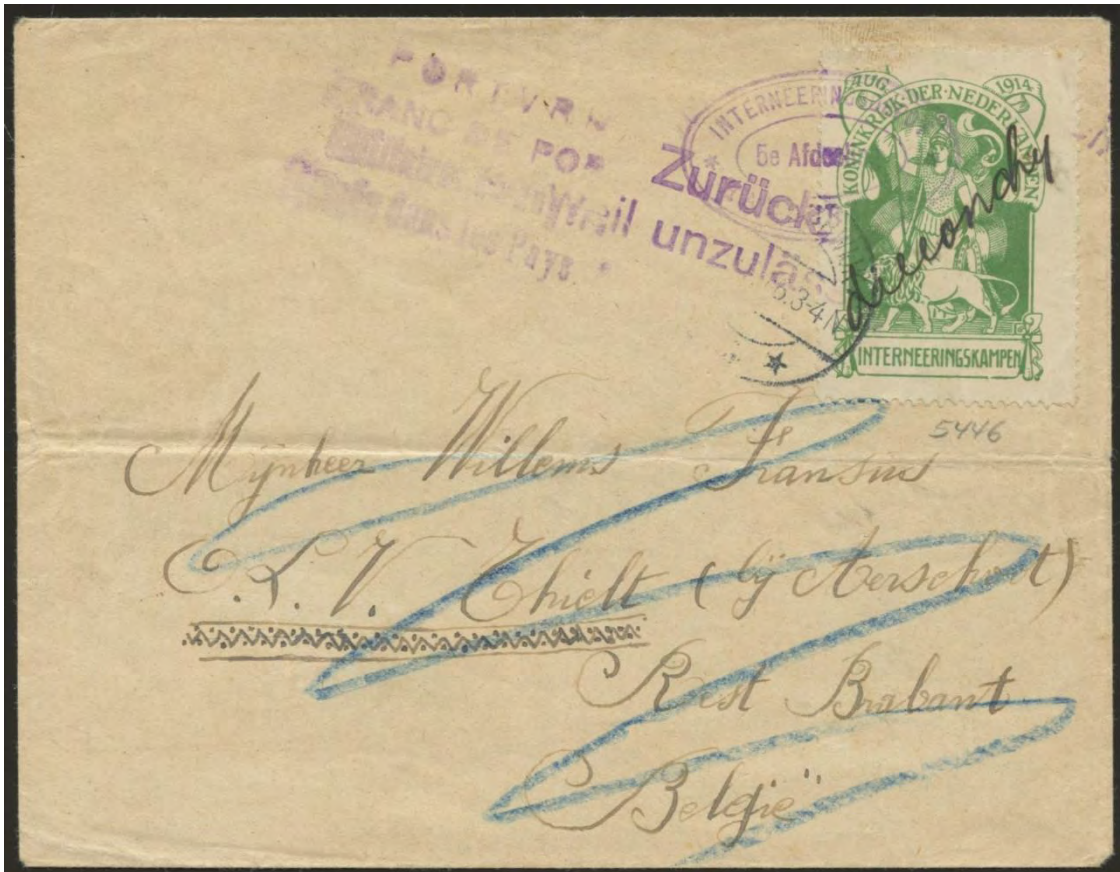 PORTVRIJ
FRANC DE PORT
Zurück
unzuläs
INTERNEERING
5e Afdee
AUG. 1914
KONINKRIJK·DER·NEDERLANDEN
INTERNEERINGSKAMPEN
3-4N
5446
Mynheer Willems Fransus
L. V. Thielt (bÿ Aerschot)
Rest Brabant
België